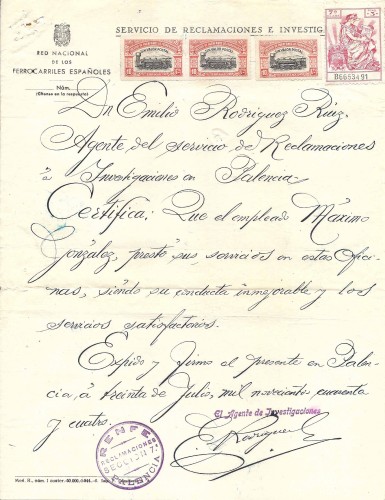 SERVICIO DE RECLAMACIONES E INVESTIG
RED NACIONAL
DE LOS
FERROCARRILES ESPAÑOLES
Núm.
(Cítense en la respuesta)
B6663491
Dn Emilio Rodriguez Ruiz.
Agente del servicio de Reclamaciones
é Investigaciones en Palencia
Certifica: Que el empleado Máximo
González, prestó sus servicios en estas Ofici-
nas, siendo su conducta inmejorable y los
servicios satisfactorios.
Expido y firmo el presente en Palen-
cia, á treinta de Julio, mil novecientos cuarenta
y cuatro.
El Agente de Investigaciones
E Rodriguez
RENFE
RECLAMACIONES
SECCION 7ª
PALENCIA